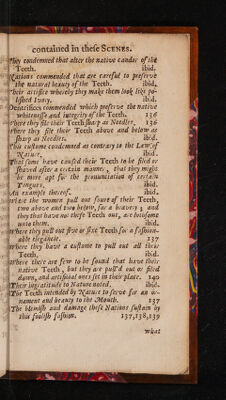 contained in these SCENES.
They condemned that alter the native candor of the
Teeth. ibid.
Nations commended that are careful to preserve
the natural beauty of the Teeth. ibid.
Their artifice whereby they make them look like po-
lished Ivory. ibid.
Dentifrices commended which preserve the native
whitenesse and integrity of the Teeth. 136
Where they file their Teeth sharp as Needles, 136
Where they file their Teeth above and below as
sharp as Needles. ibid.
This custome condemned as contrary to the Law of
Nature, ibid.
That some have caused their Teeth to be filed or
shaved after a certain manner, that they might
be more apt for the pronunciation of certain
Tongues, ibid.
An example thereof. ibid.
Where the women pull out foure of their Teeth,
two above and two below, for a bravery; and
they that have not these Teeth out, are lothsome
unto them. ibid.
Where they pull out five or sixe Teeth for a fashion-
able elegancie. 137
Where they have a custome to pull out all their
Teeth, ibid.
Where there are few to be found that have their
native Teeth, but they are pull'd out or filed
down, and artificiall ones set in their place. 140
Their ingratitude to Nature noted. ibid.
The Teeth intended by Nature to serve for an or-
nament and beauty to the Mouth. 137
The blemish and damage these Nations sustain by
this foolish fashion. 137,138,139
what